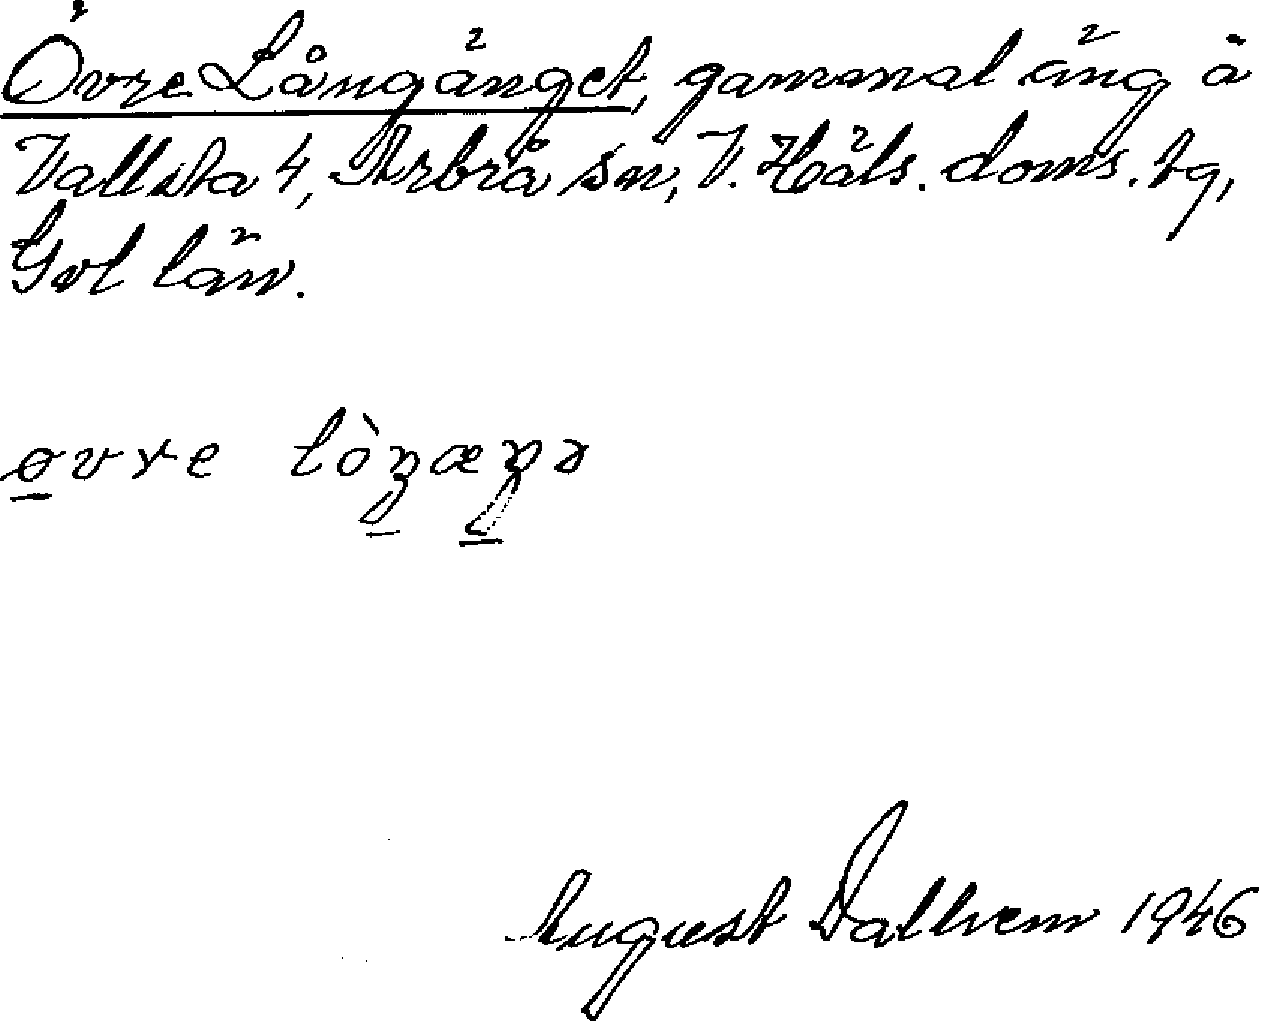 Övre Långänget, gammal äng å
Vallsta 4, Arbrå sn, V. Häls. doms. tg,
Gvl län.
øvre lòŋæŋə
August Dallvem 1946